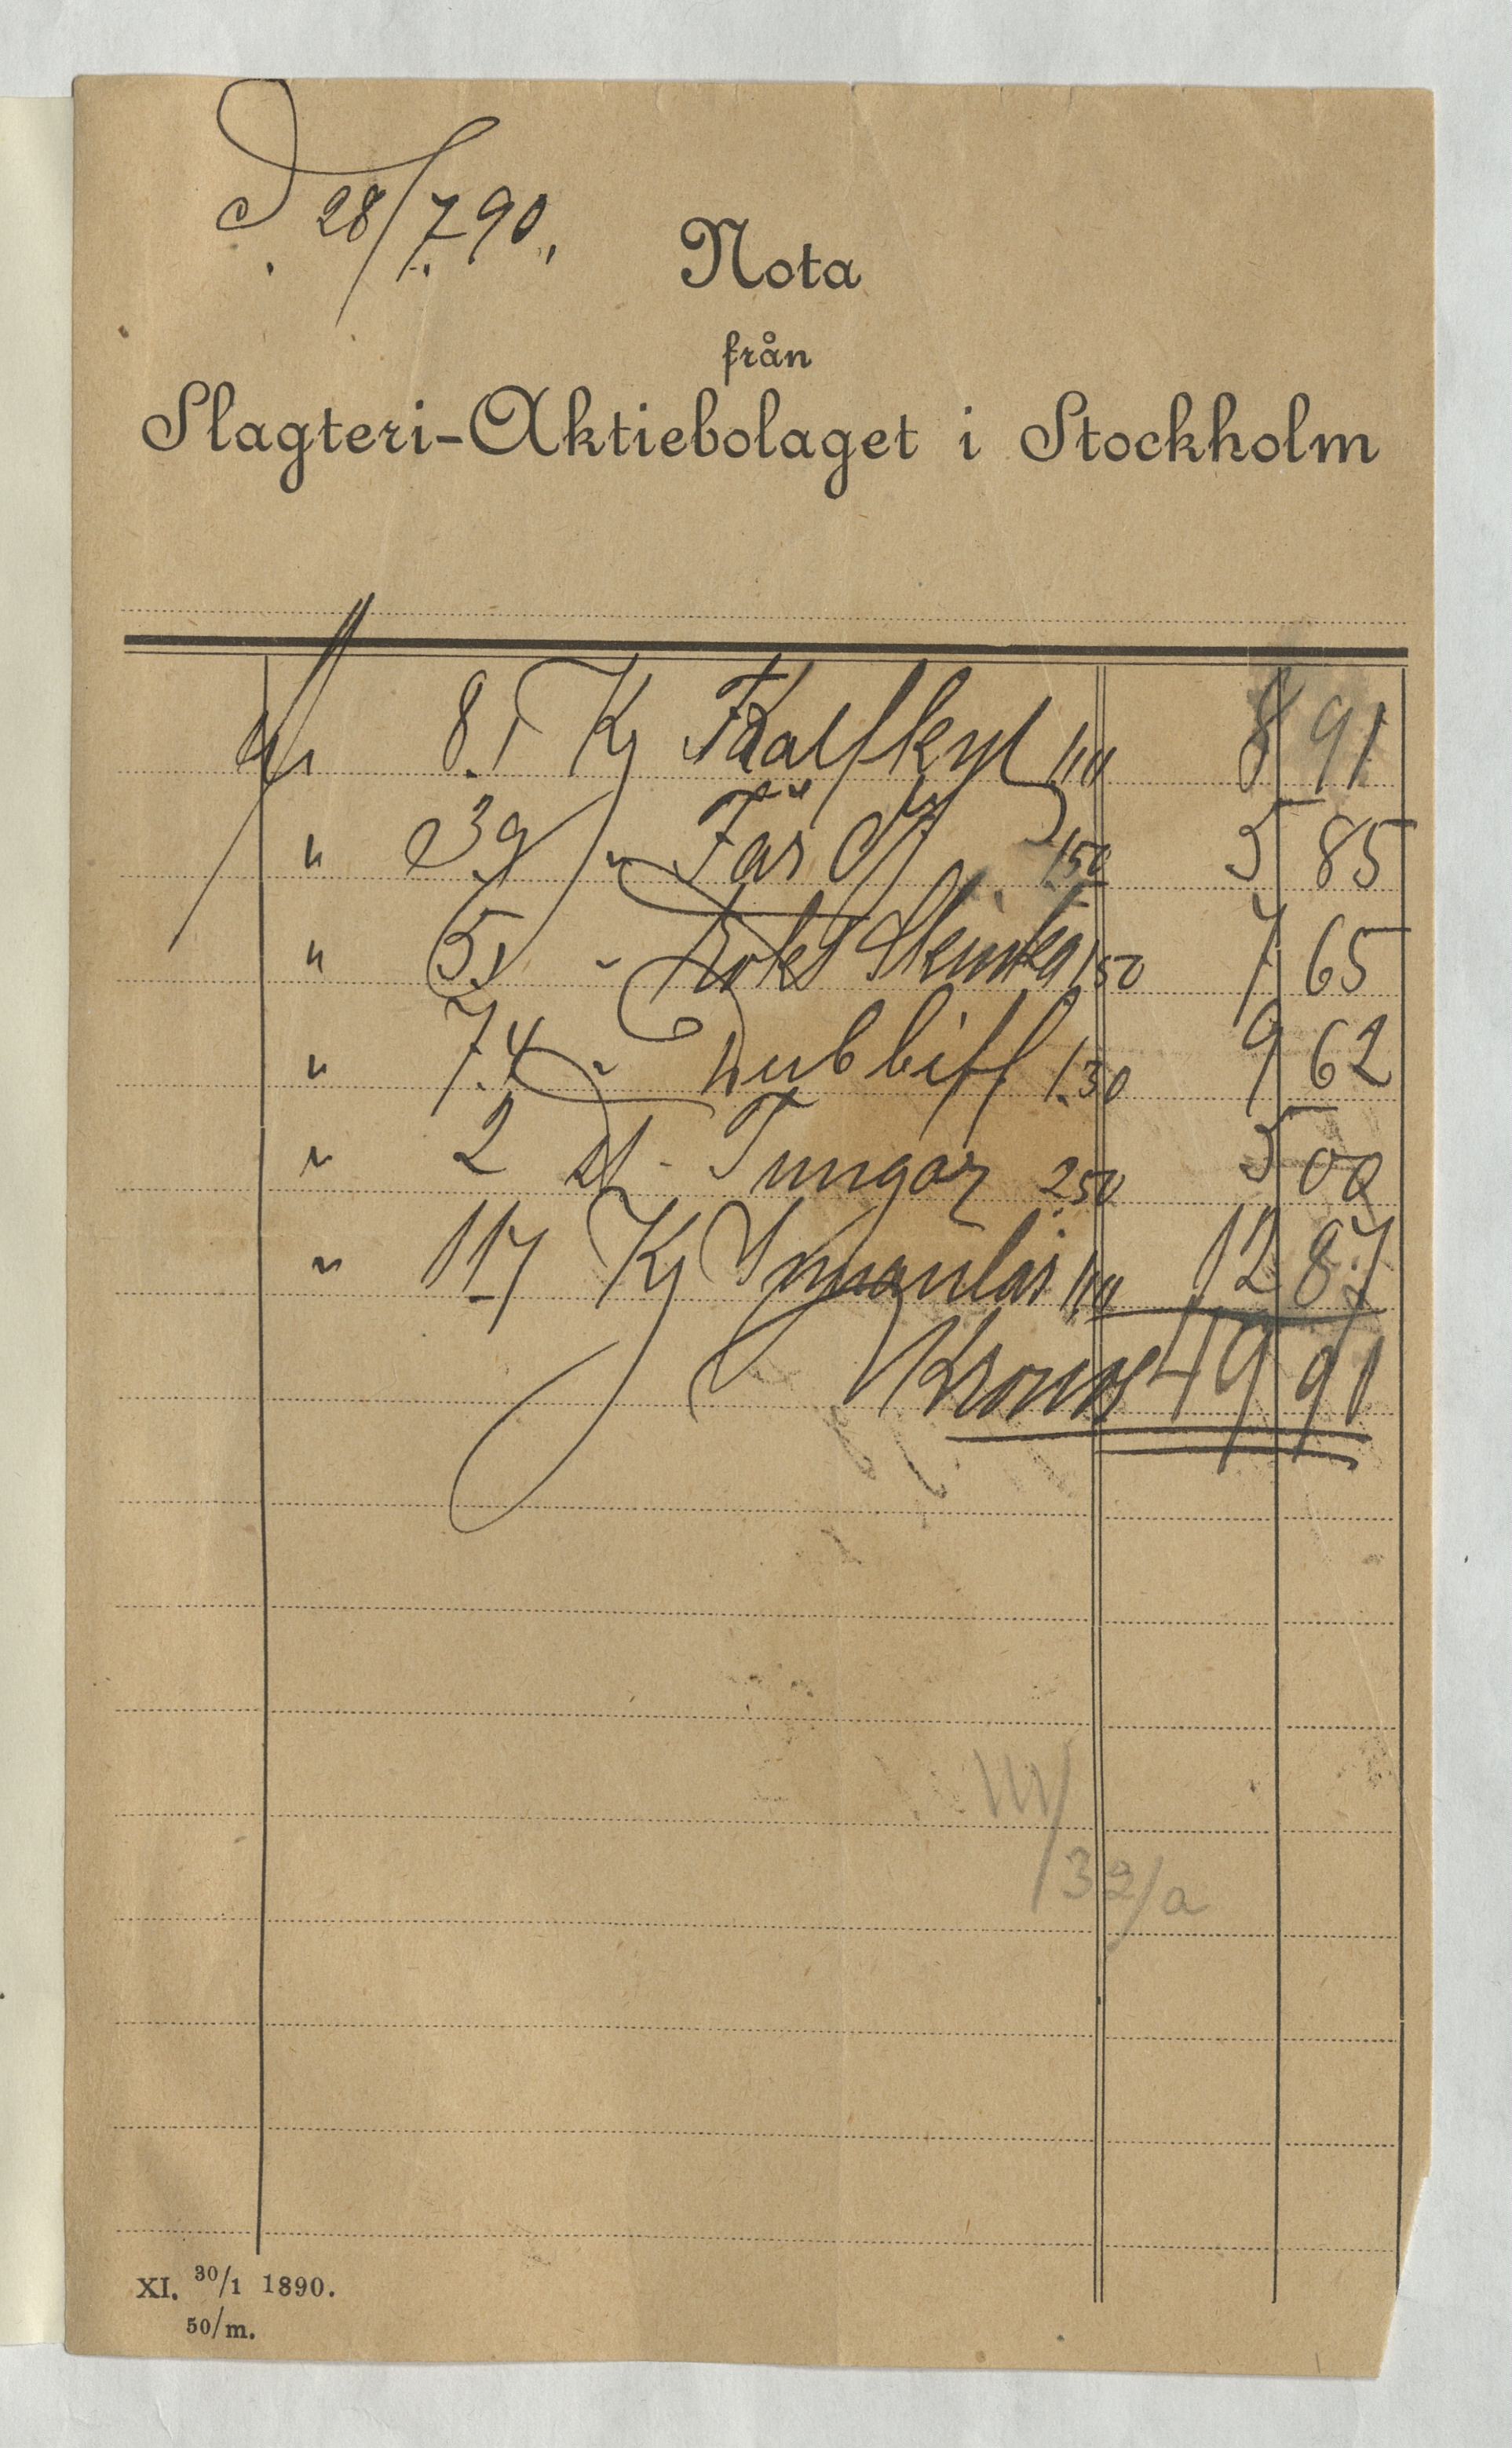 d 28/7 90.
Nota
från
Slagteri-Aktiebolaget i Stockholm
8.1 Kg Kalfkyl 1,10 8 91
" 3.9 " Får 1.50 5 85
" 5.1 " Kokt Skinka 1.50 7 65
" 7.4 " Rubbiff 1.30 9 62
" 2 st. Tungor 2.50 5 00
" 11.7 Kg 1,10 12 87
Kronor 49 91
32/a
XI. 30/1 1890.
50/m.